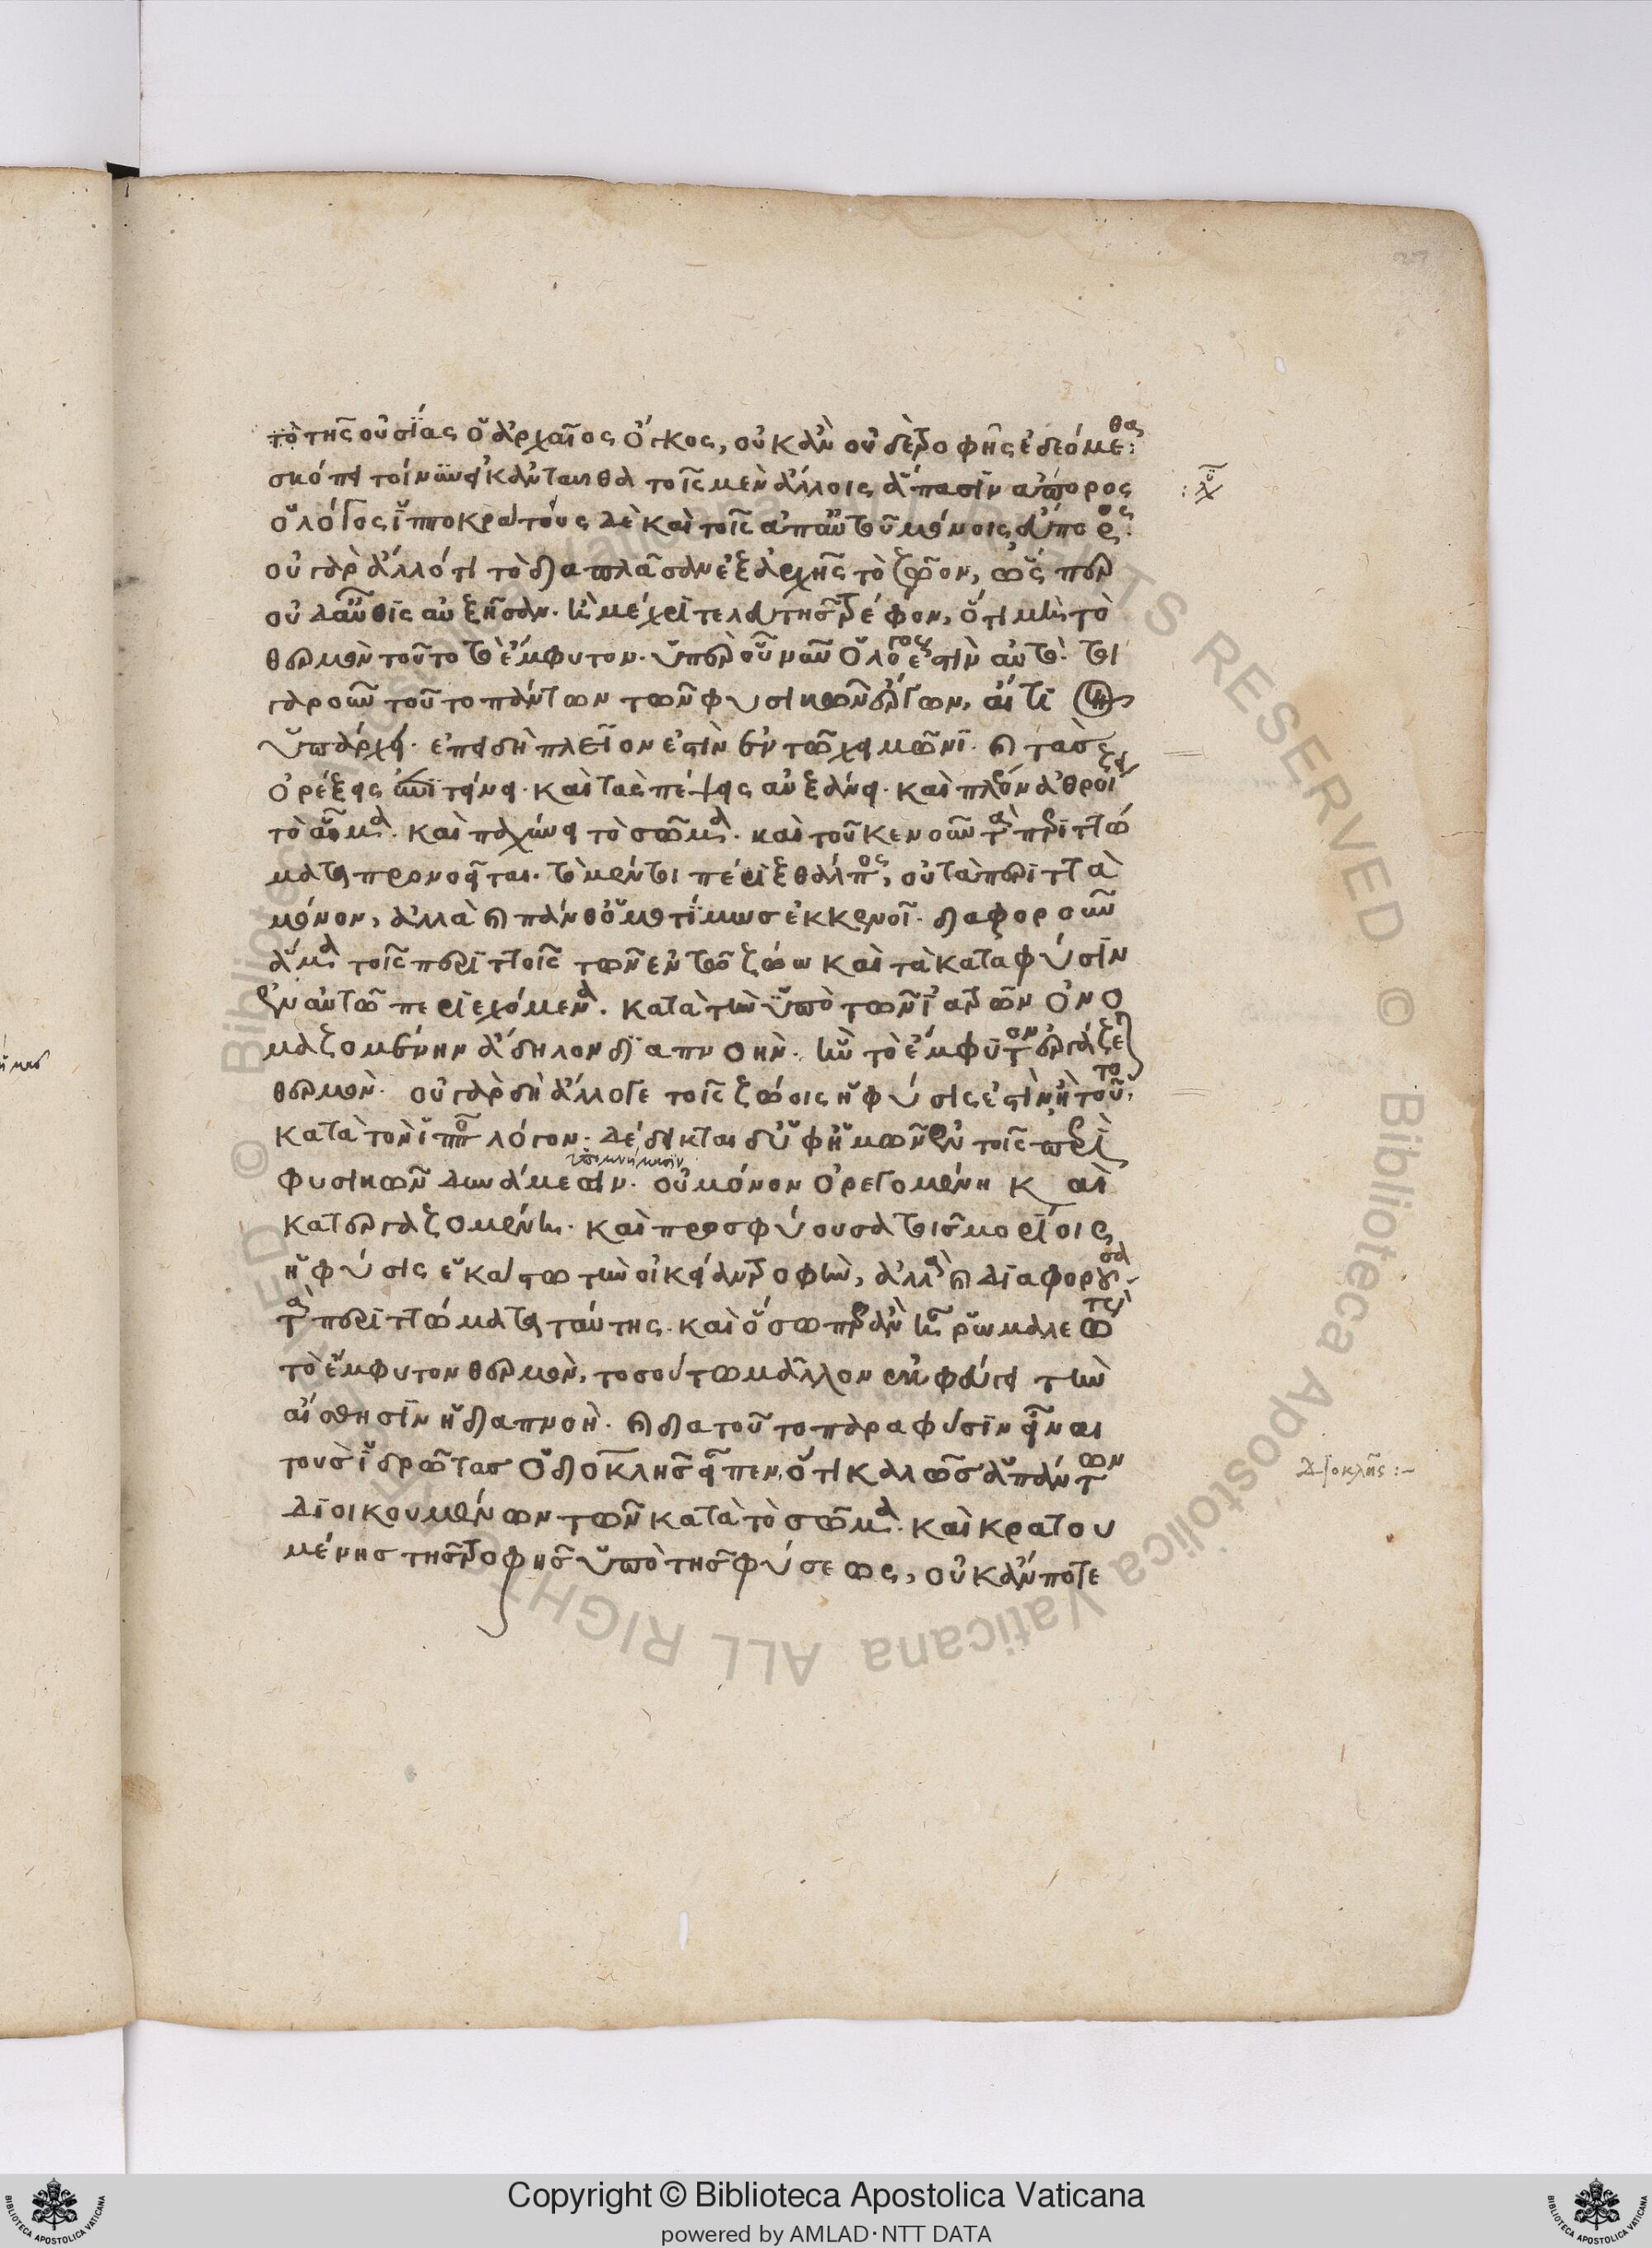 τὸ τῆς οὐσίας ὁ ἀρχαῖος ὄγκος, οὐκ ἂν οὐδὲ τροφῆς ἐδεόμεθα:
σκόπει τοίνυν εἰ κἀνταυθα τοῖς μὲν ἄλλοις ἅπασιν ἄπορος
ὁ λόγος ἱπποκράτους δὲ καὶ τοῖς ἀπ' αὐτοῦ μόνοις εὔπορος.
οὐ γὰρ ἄλλό τι τὸ διαπλάσαν ἐξ ἀρχῆς τὸ ζῶον, ὥσπερ
οὐδ' αὖθις αὐξῆσαν. καὶ μέχρι τελευτῆς τρέφον, ὅτι μὴ τὸ
θερμὸν τοῦτο τὸ ἔμφυτον. ὑπὲρ οὗ νῦν ὁ λόγος ἐστὶν αὐτῶ. τὸ
γὰρ οὖν τοῦτο πάντων τῶν φυσικῶν ἔργων, αἴτιον
ὑπάρχει. ἐπειδὴ πλεῖον ἐστὶν ἐν τῶ χειμῶνι. καὶ τὰς
ὀρέξεις ἐπιτείνει. καὶ τὰς πέψεις αὐξάνει. καὶ πλέον ἀθροίζει
τὸ αἷμα. καὶ παχύνει τὸ σῶμα. καὶ τοῦ κενοῦν τὰ περιττώ
ματα προνοεῖται. τὸ μέντοι πέριξ θάλπος, οὐ τὰ περιττὰ
μόνον, ἀλλὰ καὶ πάνθ' ὁμοτίμως ἐκκενοῖ. διαφοροῦν
ἅμα τοῖς περιττοῖς τῶν ἐν τῶ ζώω καὶ τὰ κατὰ φύσιν
ἐν αὐτῶ περιεχόμενα. κατὰ τὴν ὑπὸ τῶν ἰατρῶν ὀνο
μαζομένην ἄδηλον διαπνοήν. ἣν τὸ ἔμφυτον ἐργάζεται
θερμόν. οὐ γὰρ δὴ ἄλλό γε τοῖς ζώοις ἡ φύσις ἐστὶν ἢ τοῦτο,
κατὰ τὸν ἱππο λόγον. δέδεικται δ' ὑφ' ἡμῶν ἐν τοῖς περὶ
φυσικῶν δυνάμεων ὑπομνήμασιν. οὐ μόνον ὀρεγομένη καὶ
κατεργαζομένη. καὶ προσφύουσα τοῖς μορίοις
ἡ φύσις ἑκάστω τὴν οἰκείαν τροφὴν, ἀλλὰ καὶ διαφοροῦσα
τὰ περιττώματα ταύτης. καὶ ὅσω περ ἂν ἦ ῥωμαλεώτερον
τὸ ἔμφυτον θερμὸν, τοσούτω μᾶλλον ἐκφεύγει τὴν
αἴσθησιν ἡ διαπνοή. καὶ διὰ τοῦτο παρὰ φύσιν εἶναι
τοὺς ἱδρῶτας ὁ διοκλῆς εἶπεν, ὅτι καλῶς ἁπάντων
διοικουμένων τῶν κατὰ τὸ σῶμα. καὶ κρατου
μένης τῆς τροφῆς ὑπὸ τῆς φύσεως, οὐκ ἄν ποτε
Διοκλῆς :-
Copyright © Biblioteca Apostolica Vaticana
powered by AMLAD·NTT DATA